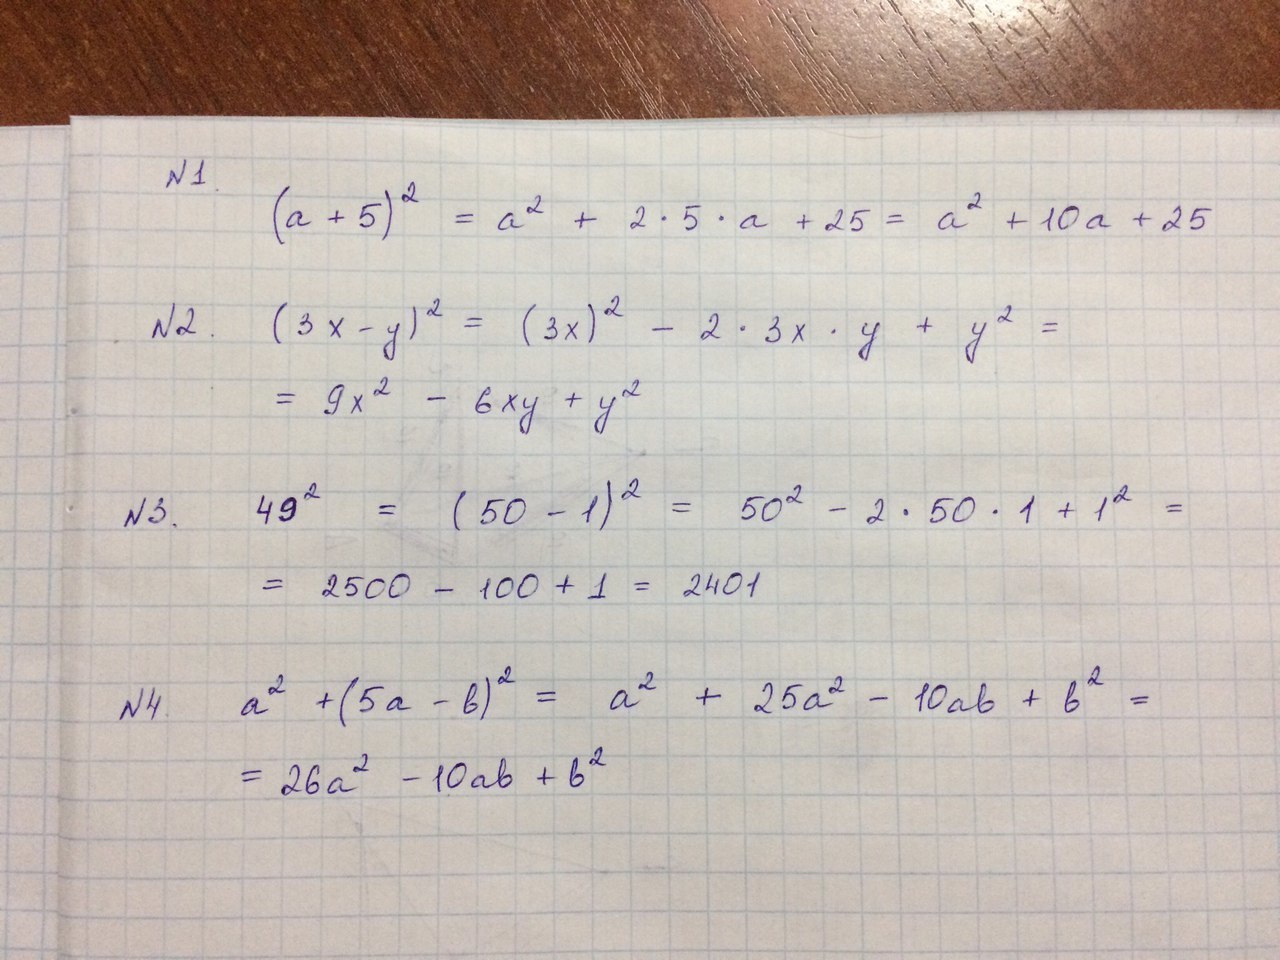 N1.
(a + 5)² = a² + 2 · 5 · a + 25 = a² + 10a + 25
N2. (3x - y)² = (3x)² - 2 · 3x · y + y² =
= 9x² - 6xy + y²
N3. 49² = (50 - 1)² = 50² - 2 · 50 · 1 + 1² =
= 2500 - 100 + 1 = 2401
N4. a² + (5a - b)² = a² + 25a² - 10ab + b² =
= 26a² - 10ab + b²